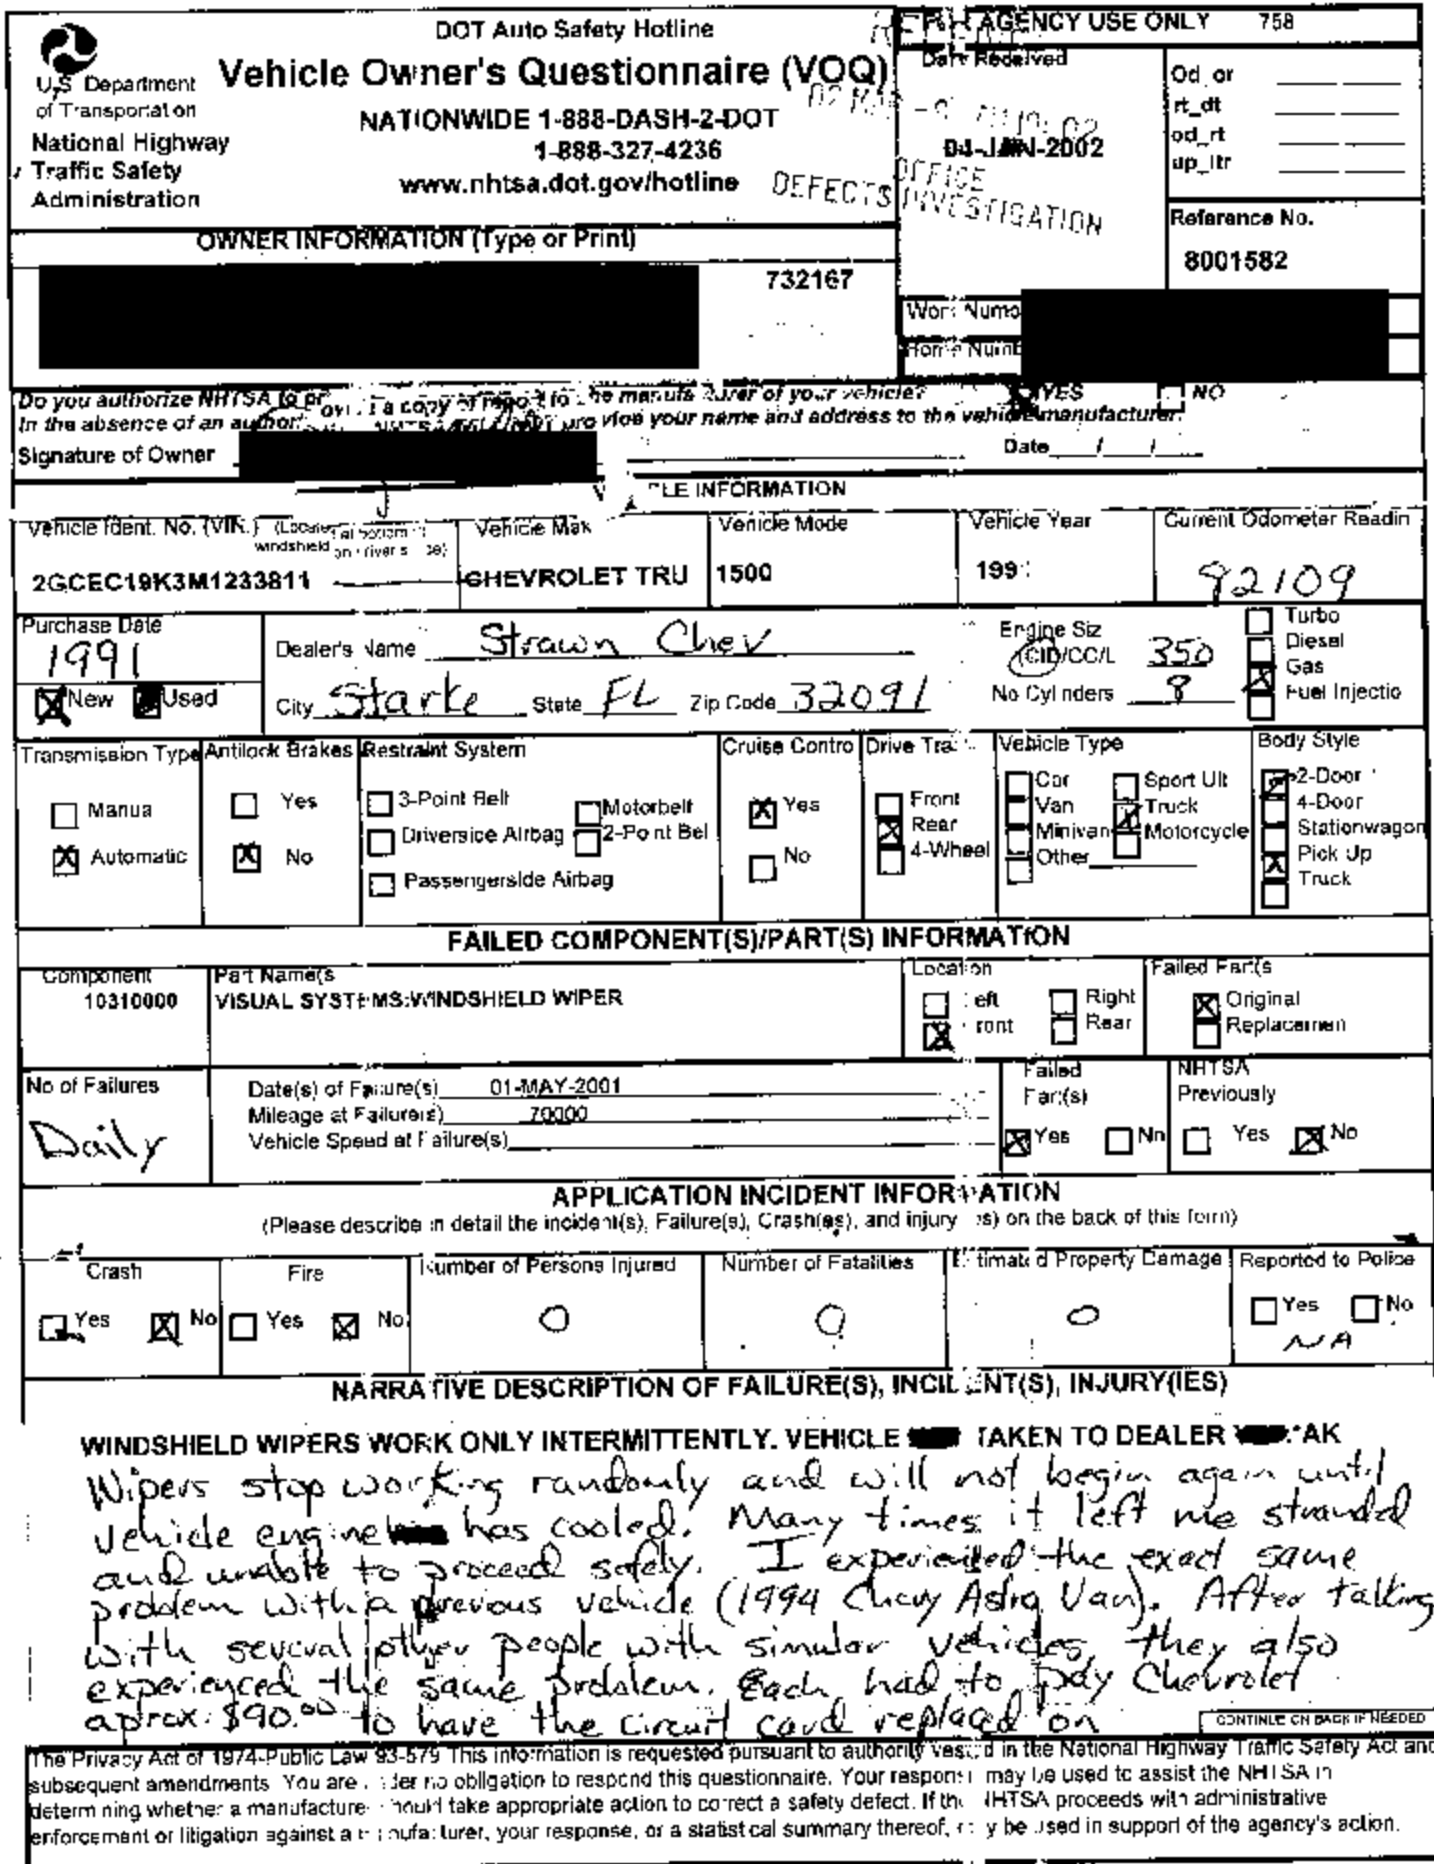 DOT Auto Safety Hotline
Vehicle Owner's Questionnaire (VOQ)
NATIONWIDE 1-888-DASH-2-DOT
1-888-327-4236
www.nhtsa.dot.gov/hotline
U.S. Department
of Transportation
National Highway
Traffic Safety
Administration
AGENCY USE ONLY 758
Date Received
04-JAN-2002
OFFICE
DEFECTS INVESTIGATION
Od_or
rt_dt
od_rt
up_ltr
Reference No.
8001582
OWNER INFORMATION (Type or Print)
732167
Work Numb
Home Numb
Do you authorize NHTSA to provide a copy of report to the manufacturer of your vehicle? YES NO
In the absence of an author provide your name and address to the vehicle manufacturer.
Signature of Owner Date / /
LE INFORMATION
Vehicle Ident. No. (VIN.) (Located at bottom of
windshield on driver's side)
2GCEC19K3M1233811
Vehicle Mak
CHEVROLET TRU
Vehicle Mode
1500
Vehicle Year
1991
Current Odometer Readin
92109
Purchase Date
1991
New Used
Dealer's Name Strawn Chev
City Starke State FL Zip Code 32091
Engine Siz
CID/CC/L 350
No Cylinders 8
Turbo
Diesel
Gas
Fuel Injectio
Transmission Type
Manua
Automatic
Antilock Brakes
Yes
No
Restraint System
3-Point Belt
Driverside Airbag
Passengerside Airbag
Motorbelt
2-Point Bel
Cruise Contro
Yes
No
Drive Trai
Front
Rear
4-Wheel
Vehicle Type
Car
Van
Minivan
Other
Sport Ult
Truck
Motorcycle
Body Style
2-Door
4-Door
Stationwagon
Pick Up
Truck
FAILED COMPONENT(S)/PART(S) INFORMATION
Component
10310000
Part Name(s
VISUAL SYSTEMS:WINDSHIELD WIPER
Location
Left Right
Front Rear
Failed Part(s
Original
Replacemen
No of Failures
Daily
Date(s) of Failure(s) 01-MAY-2001
Mileage at Failure(s) 70000
Vehicle Speed at Failure(s)
Failed
Part(s)
Yes No
NHTSA
Previously
Yes No
APPLICATION INCIDENT INFORMATION
(Please describe in detail the incident(s), Failure(s), Crash(es), and injury(ies) on the back of this form)
Crash
Yes No
Fire
Yes No
Number of Persons Injured
0
Number of Fatalities
0
Estimated Property Damage
0
Reported to Police
Yes No
NA
NARRATIVE DESCRIPTION OF FAILURE(S), INCIDENT(S), INJURY(IES)
WINDSHIELD WIPERS WORK ONLY INTERMITTENTLY. VEHICLE TAKEN TO DEALER *AK
Wipers stop working randomly and will not begin again until
vehicle engine has cooled. Many times it left me stranded
and unable to proceed safely. I experienced the exact same
problem with a previous vehicle (1994 Chevy Astro Van). After talking
with several other people with simular vehicles, they also
experienced the same problem. Each had to pay Chevrolet
aprox. $90.00 to have the circuit card replaced on
CONTINUE ON BACK IF NEEDED
The Privacy Act of 1974-Public Law 93-579 This information is requested pursuant to authority vested in the National Highway Traffic Safety Act and
subsequent amendments You are under no obligation to respond this questionnaire. Your response may be used to assist the NHTSA in
determining whether a manufacturer should take appropriate action to correct a safety defect. If the NHTSA proceeds with administrative
enforcement or litigation against a manufacturer, your response, or a statistical summary thereof, may be used in support of the agency's action.